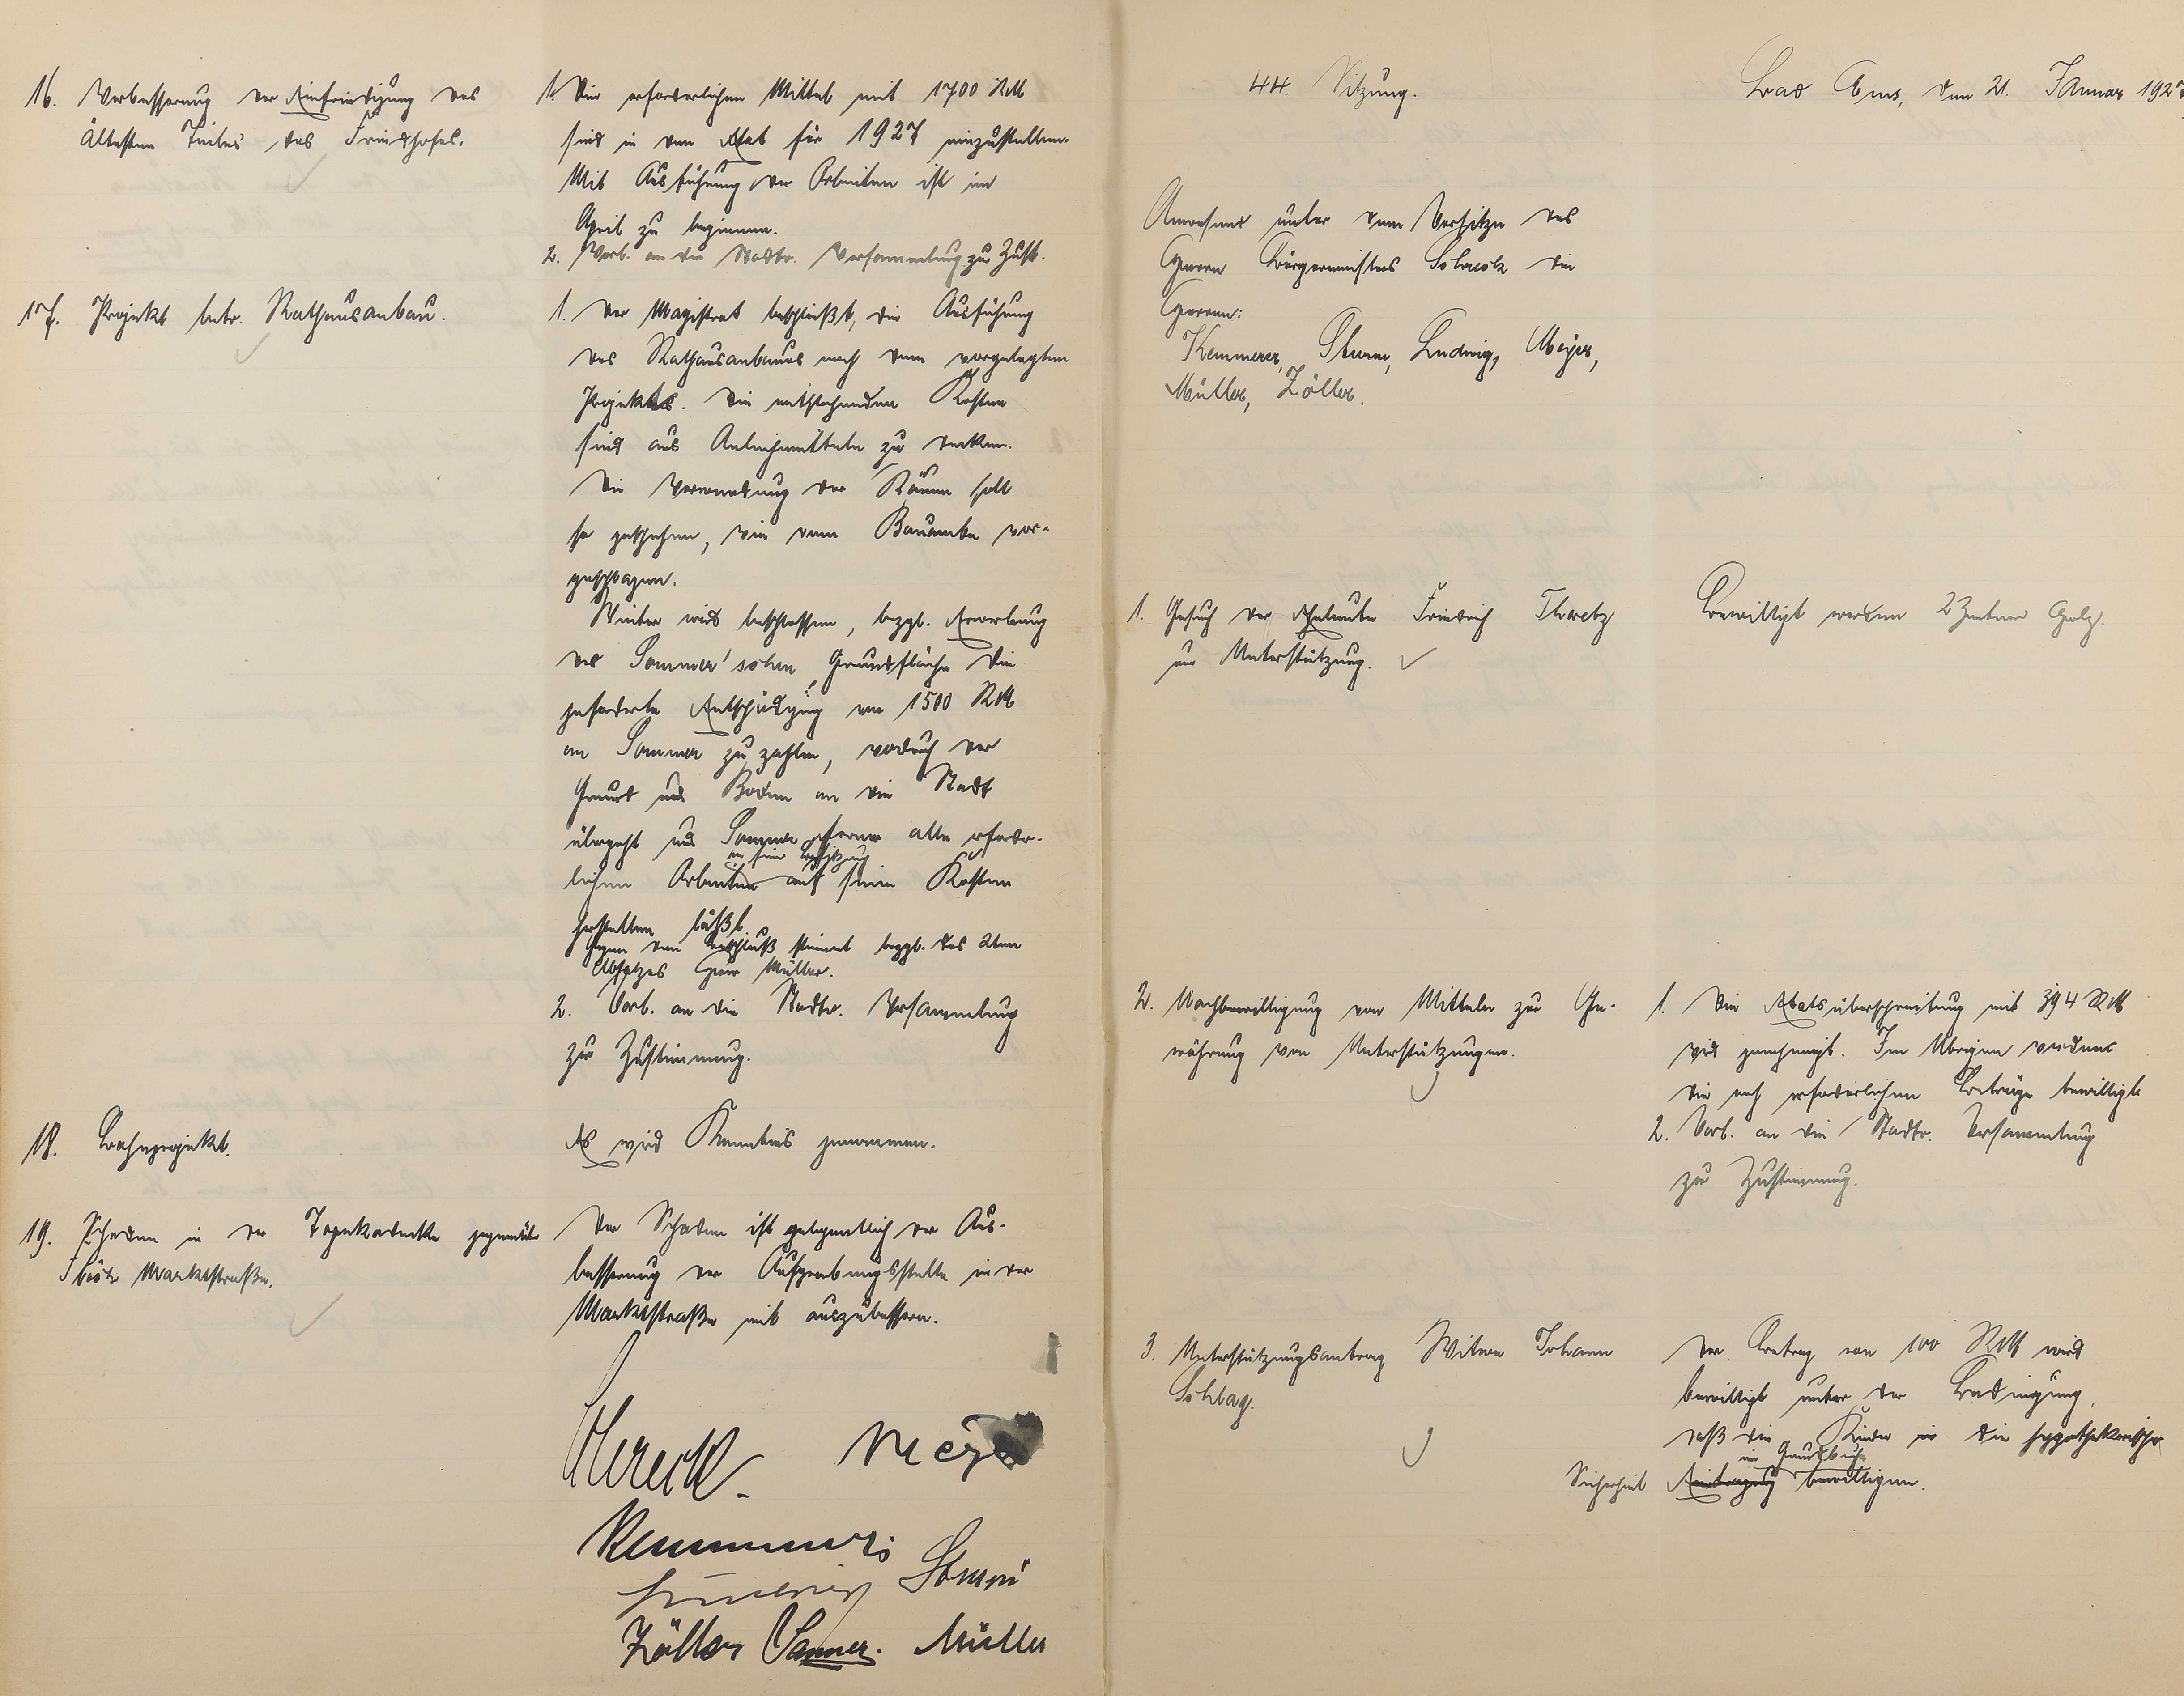 16. Verbesserung der Einfriedigung des
ältesten Teiles des Friedhofes.
1. Die erforderlichen Mittel mit 1700 RM
sind in den Etat für 1927 einzustellen.
Mit Ausführung der Arbeiten ist im
April zu beginnen.
2. Vorl. an die Stadtv. Versammlung zur Zust.
17. Projekt betr. Rathausanbau.
1. Der Magistrat beschließt, die Ausführung
des Rathausanbaues nach dem vorgelegten
Projekte. Die entstehenden Kosten
sind aus Anleihemitteln zu decken.
Die Verwendung der Räume soll
so geschehen, wie vom Bauamte vor-
geschlagen.
Weiter wird beschlossen, bezgl. Erwerbung
der Sommer'schen Grundfläche die
geforderte Entschädigung von 1500 RM
an Sommer zu zahlen, wodurch der
Grund und Boden an die Stadt
übergeht und Sommer ferner alle erforder-
an seiner Besitzung
lichen Arbeiten auf seine Kosten
herstellen läßt.
Gegen den Beschluß stimmt bezgl. des 2ten
Absatzes Herr Müller.
2. Vorl. an die Stadtv. Versammlung
zur Zustimmung.
18. Bahnprojekt.
Es wird Kenntnis genommen.
19. Schaden in der gegenüber
Marktstraße.
Der Schaden ist gelegentlich der Aus-
besserung der Aufgrabungsstelle in der
Marktstraße mit auszubessern.
Schreck Meyer
Kemmerer
Ludwig Sturm
Zöller Müller
44. Sitzung.
Bad Ems, den 21. Januar 1927
Anwesend unter dem Vorsitze des
Herrn Bürgermeisters Schreck die
Herren:
Kemmerer, Sturm, Ludwig, Meyer,
Müller, Zöller.
1. Gesuch der Eheleute Friedrich
um Unterstützung.
Bewilligt werden 2 Zentner Holz.
2. Nachbewilligung von Mitteln zur Ge-
währung von Unterstützungen.
1. Die Etatsüberschreitung mit 394 RM
wird genehmigt. Im Übrigen werden
die noch erforderlichen Beträge bewilligt.
2. Vorl. an die Stadtv. Versammlung
zur Zustimmung.
3. Unterstützungsantrag Witwe Johann
Schlag.
Der Betrag von 100 RM wird
bewilligt unter der Bedingung,
daß die Kinder in die hypothekarische
im Grundbuche
Sicherheit Eintragung bewilligen.